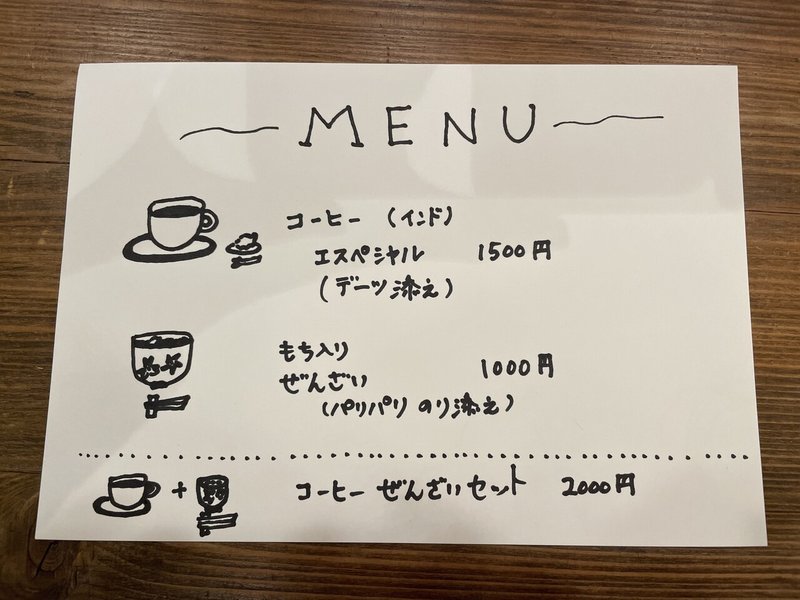 MENU
コーヒー (インド)
エスペシャル 1500円
(デーツ添え)
もち入り
ぜんざい 1000円
(パリパリ のり添え)
+ コーヒー ぜんざいセット 2000円